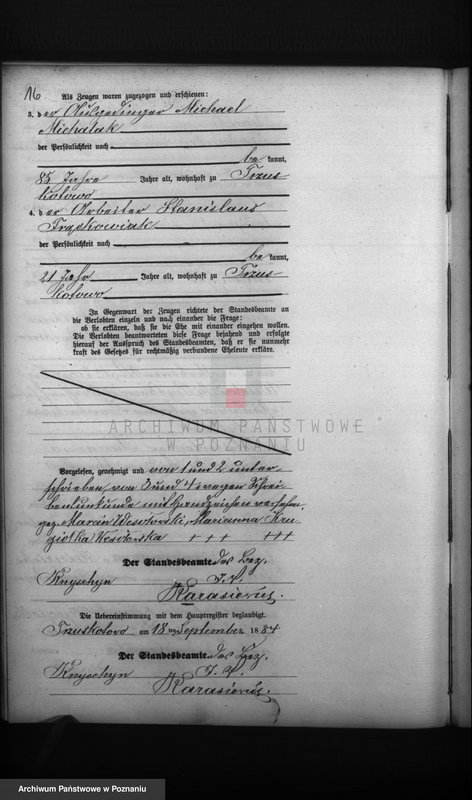 16
Als Zeugen waren zugezogen und erschienen:
3. der Ausgedinger Michael
Michalak
der Persönlichkeit nach
be kannt,
85 Jahre Jahre alt, wohnhaft zu Trzus-
kolowo
4. der Arbeiter Stanislaus
Frąskowiak
der Persönlichkeit nach
be kannt,
21 Jahr Jahre alt, wohnhaft zu Trzus-
kolowo
In Gegenwart der Zeugen richtete der Standesbeamte an
die Verlobten einzeln und nach einander die Frage:
ob sie erklären, daß sie die Ehe mit einander eingehen wollen.
Die Verlobten beantworteten diese Frage bejahend und erfolgte
hierauf der Ausspruch des Standesbeamten, daß er sie nunmehr
kraft des Gesetzes für rechtmäßig verbundene Eheleute erkläre.
ARCHIWUM PAŃSTWOWE
W POZNANIU
Vorgelesen, genehmigt und von 1 und 2 unter-
schrieben, von 3 und 4 wegen Schrei-
benunkunde mit Handzeichen versehen
gez. Marian Wesołowski, Marianna
+ + + +++
Der Standesbeamte des Bez.
J. V.
Karasiewicz.
Die Uebereinstimmung mit dem Hauptregister beglaubigt.
Trzuskolowo am 18 ten September 1884
Der Standesbeamte des Bez.
J. V.
Karasiewicz.
Archiwum Państwowe w Poznaniu